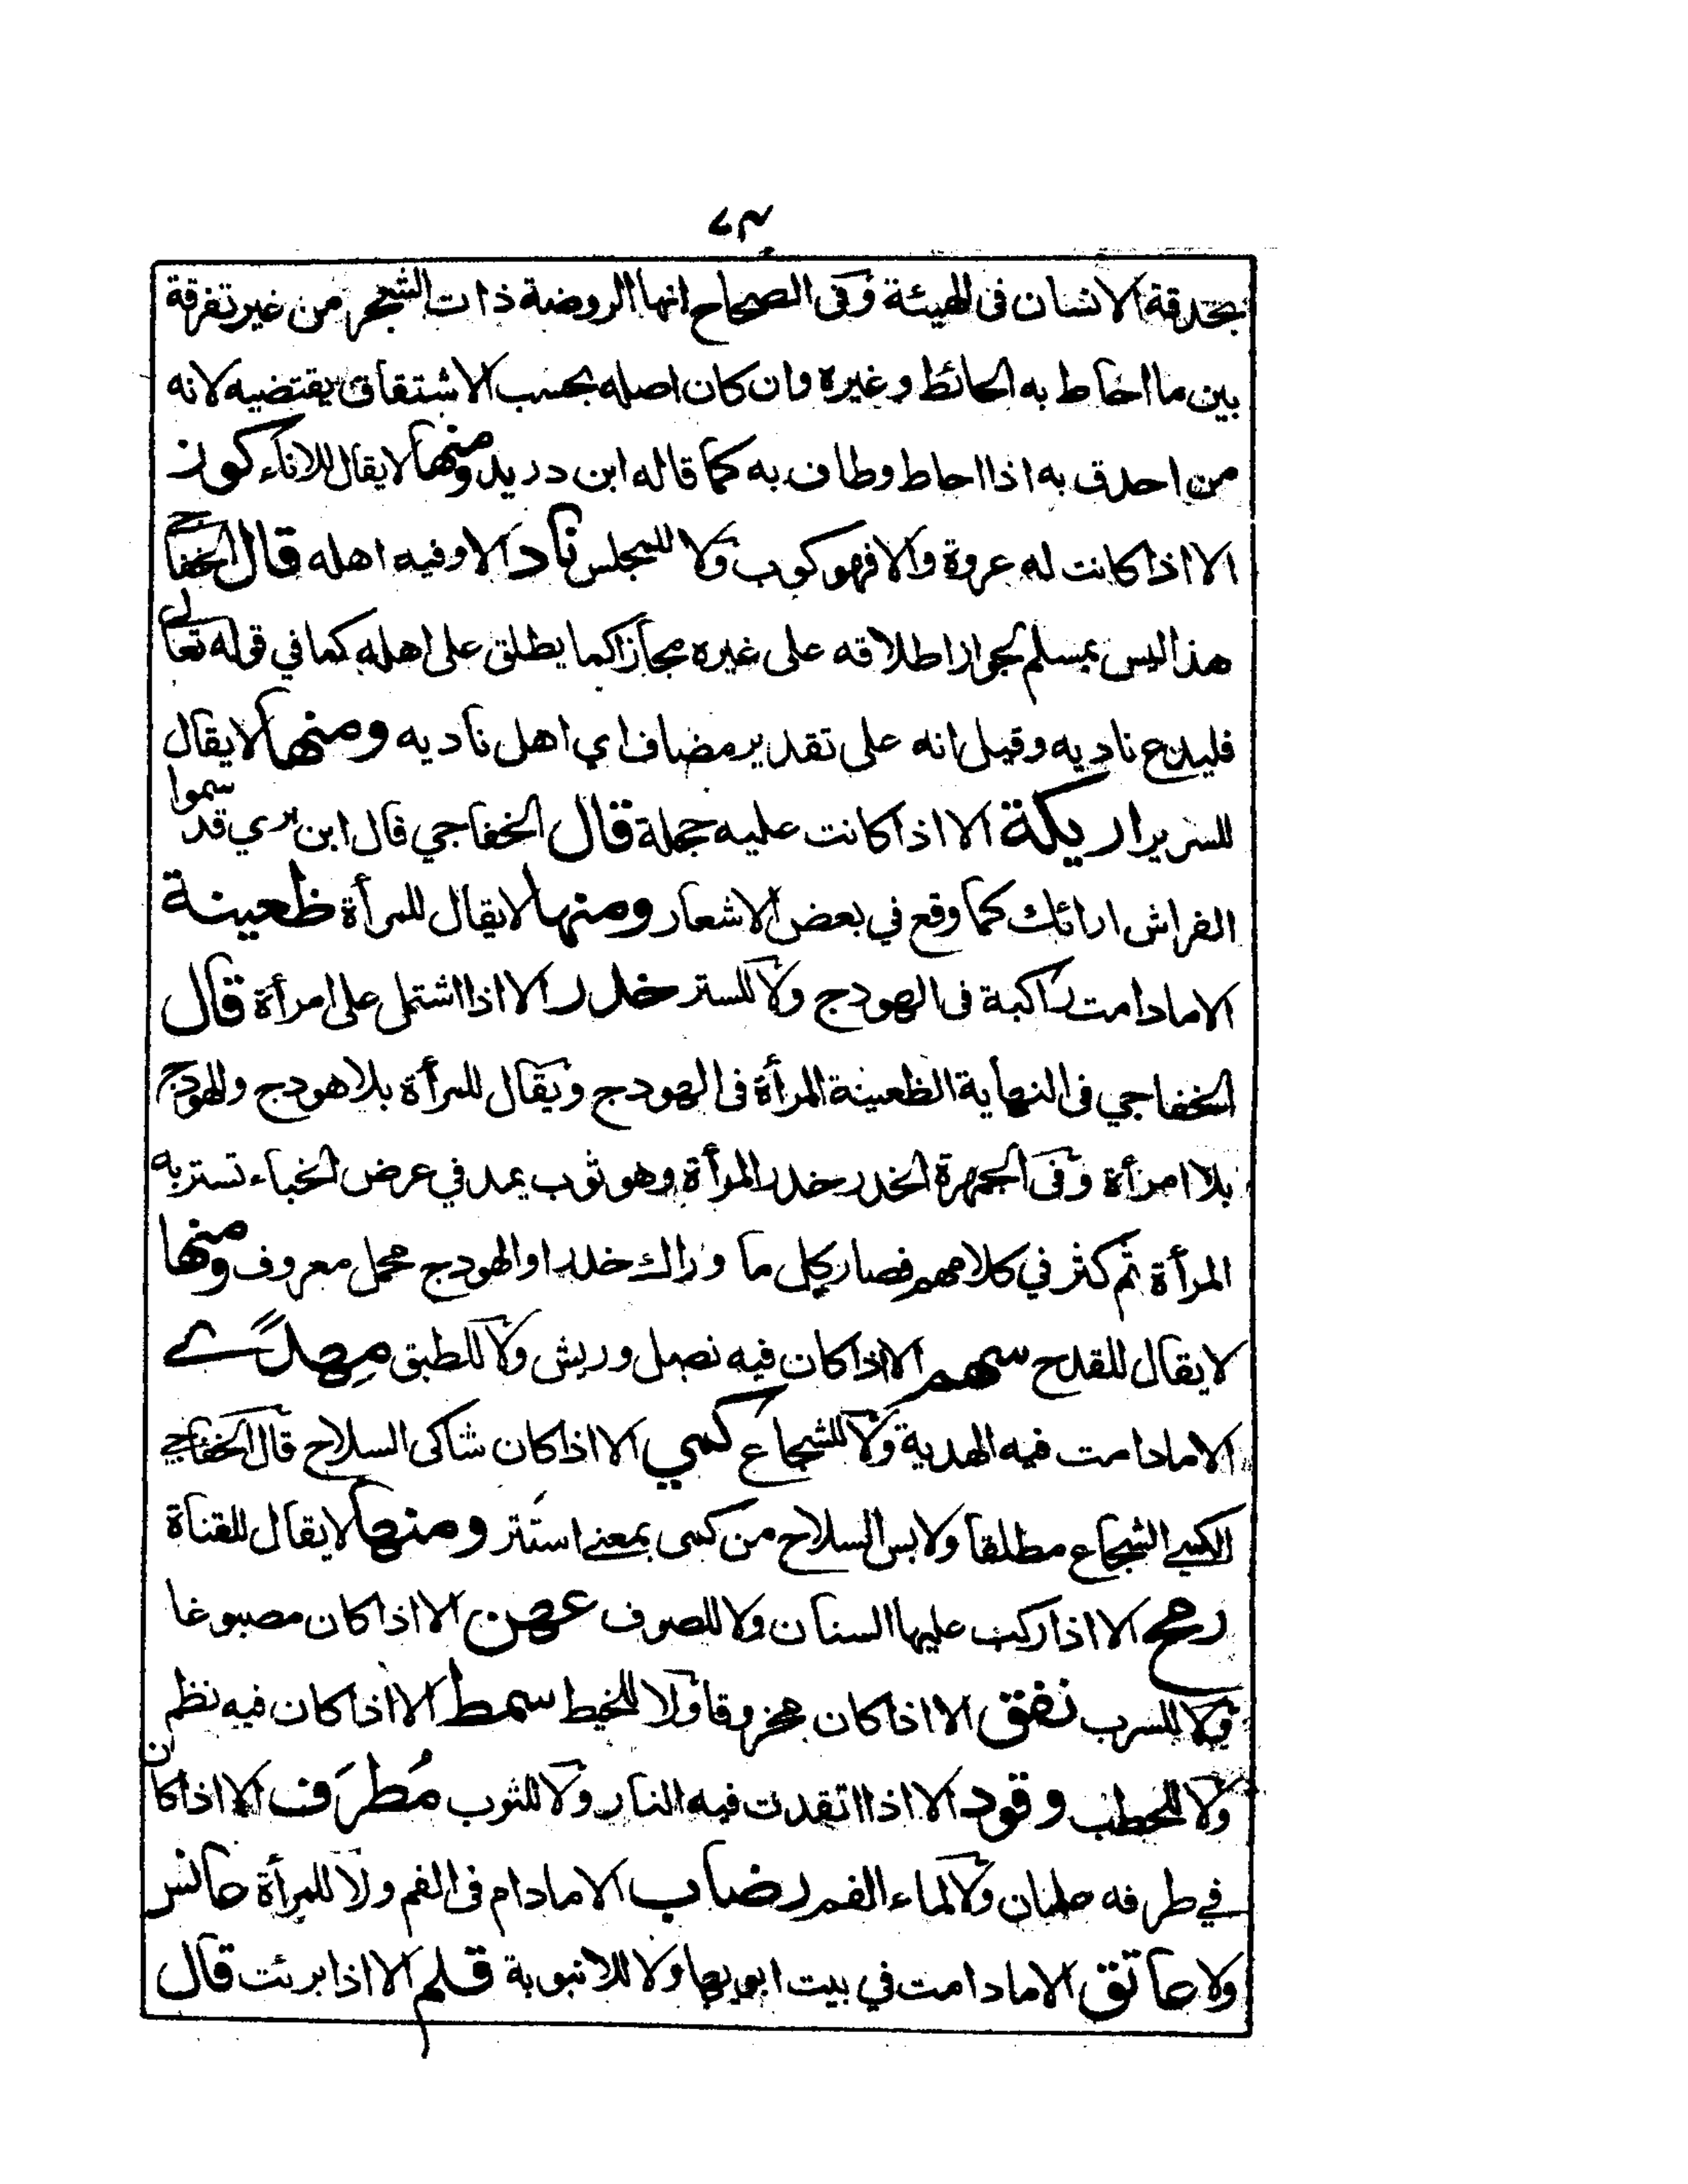 ٧٣
بحدقة الانسان فى الهيئة وفى الصحاح انها الروضة ذات الشجر من غير تفرقة
بين ما احاط به الحائط وغيره وان كان اصله بحسب الاشتقاق يقتضيه لانه
من احدق به اذا احاط وطاف به كما قاله ابن دريد ومنها لا يقال للاناء كوز
الا اذا كانت له عروة والا فهو كوب ولا للمجلس ناد الا وفيه اهله قال الخفاجي
هذا ليس بمسلم لجواز اطلاقه على غيره مجازا كما يطلق على اهله كما في قوله تعالى
فليدع ناديه وقيل انه على تقدير مضاف اي اهل ناديه ومنها لا يقال
للسرير اريكة الا اذا كانت عليه حجلة قال الخفاجي قال ابن بري قد سموا
الفراش ارائك كما وقع في بعض الاشعار ومنها لا يقال للمرأة ظعينة
الا مادامت راكبة فى الهودج ولا للستر خدر الا اذا اشتمل على امرأة قال
الخفاجي فى النهاية الظعينة المرأة فى الهودج ويقال للمرأة بلا هودج وللهودج
بلا امرأة وفى الجمهرة الخدر خدر المرأة وهو ثوب يمد في عرض الخباء تستتر به
المرأة ثم كثر في كلامهم فصار كل ما وراك خدرا والهودج محمل معروف ومنها
لا يقال للقدح سهم الا اذا كان فيه نصل وريش ولا للطبق مهدًى
الا مادامت فيه الهدية ولا للشجاع كمي الا اذا كان شاكى السلاح قال الخفاجي
الكمي الشجاع مطلقا ولابس السلاح من كمى بمعنى استتر ومنها لا يقال للقناة
رمح الا اذا ركب عليها السنان ولا للصوف عهن الا اذا كان مصبوغا
ولا للسرب نفق الا اذا كان مخروقا ولا للخيط سمط الا اذا كان فيه نظم
ولا للحطب وقود الا اذا اتقدت فيه النار ولا للثوب مُطرَف الا اذا كان
في طرفه علمان ولا لماء الفم رضاب الا مادام فى الفم ولا للمرأة عانس
ولا عاتق الا مادامت في بيت ابويها ولا للانبوبة قلم الا اذا بريت قال